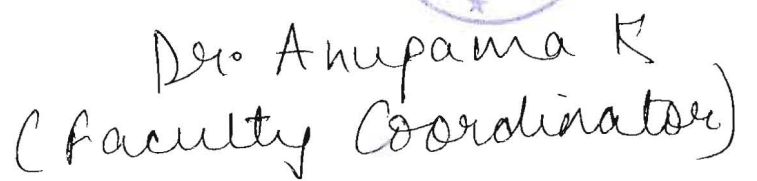 Dr. Anupama K
(Faculty Coordinator)